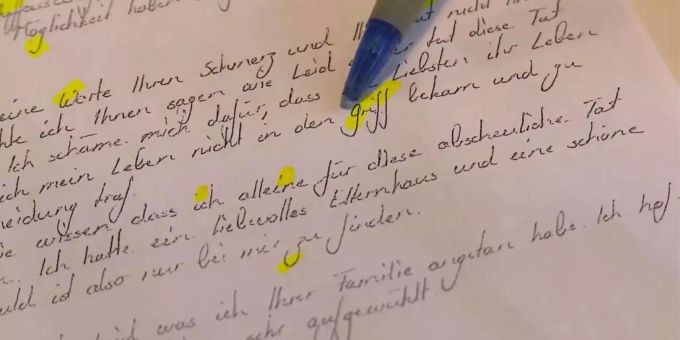 Möglichkeit haben
eine Worte Ihren Schmerz und Ihr nicht
ich Ihnen sagen wie Leid tut diese Tat
Ich schäme mich dafür, dass Liebsten ihr Leben
ich mein Leben nicht in den griff bekam und zu
traf.
wissen dass ich alleine für diese abscheuliche Tat
Ich hatte ein liebevolles Elternhaus und eine schöne
ist also nur bei mir zu finden.
was ich Ihrer Familie angetan habe. Ich
aufgewühlt.